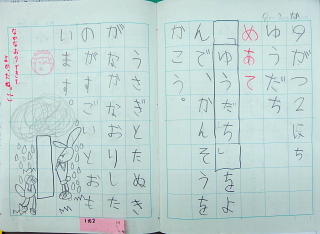 ９がつ２にち
ゆうだち
めあて
「ゆうだち」をよ
んで、かんそうを
かこう。
うさぎとたぬき
がなかなおりした
のがすごいとおも
います。
なかなおりできて
よかったね。